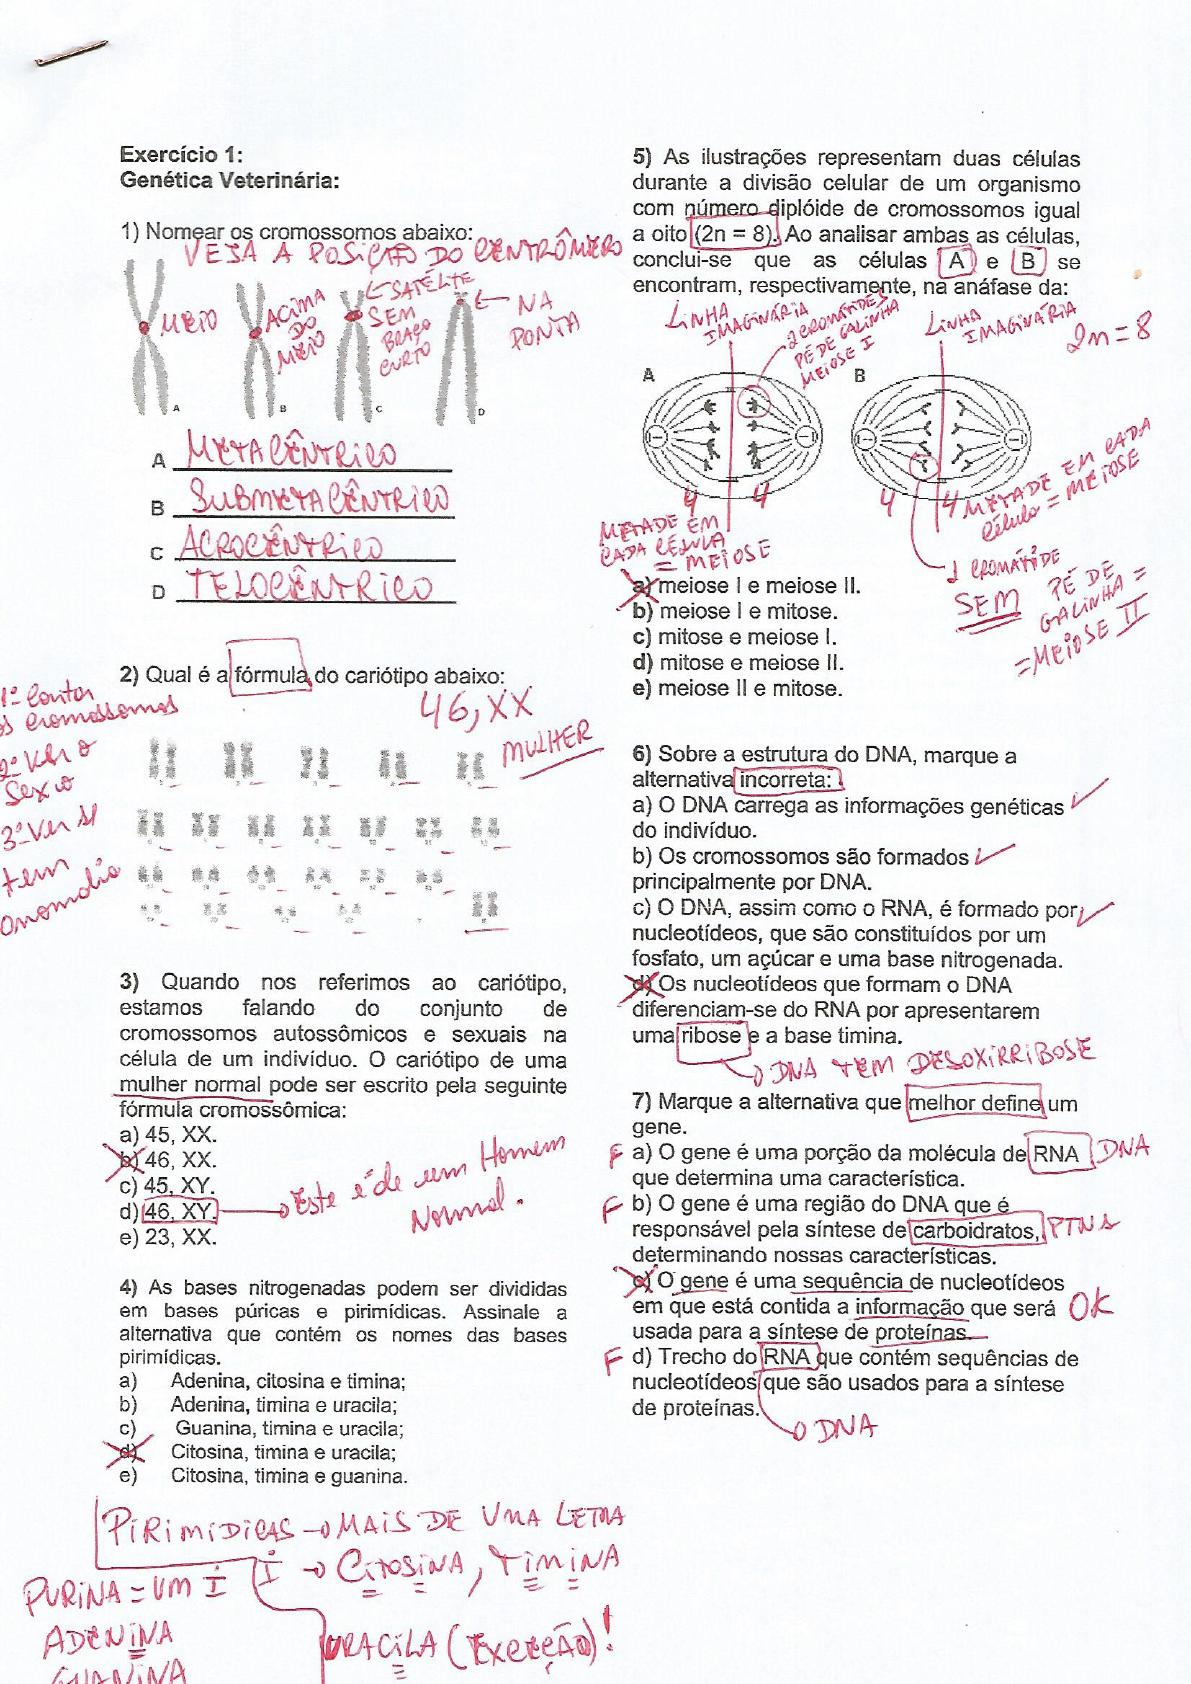 Exercício 1:
Genética Veterinária:
1) Nomear os cromossomos abaixo:
VEJA A POSIÇÃO DO CENTRÔMERO
MEIO
ACIMA
DO
MEIO
SATÉLITE
SEM
BRAÇO
CURTO
NA
PONTA
A
B
C
D
A METACÊNTRICO
B SUBMETACÊNTRICO
C ACROCÊNTRICO
D TELOCÊNTRICO
2) Qual é a fórmula do cariótipo abaixo:
46, XX
MULHER
1º Contar
os Cromossomos
2º Ver o
Sexo
3º Ver se
tem
anomalia
3) Quando nos referimos ao cariótipo,
estamos falando do conjunto de
cromossomos autossômicos e sexuais na
célula de um indivíduo. O cariótipo de uma
mulher normal pode ser escrito pela seguinte
fórmula cromossômica:
a) 45, XX.
b) 46, XX.
c) 45, XY.
d) 46, XY.
e) 23, XX.
Este é de um Homem
Normal.
4) As bases nitrogenadas podem ser divididas
em bases púricas e pirimídicas. Assinale a
alternativa que contém os nomes das bases
pirimídicas.
a) Adenina, citosina e timina;
b) Adenina, timina e uracila;
c) Guanina, timina e uracila;
d) Citosina, timina e uracila;
e) Citosina, timina e guanina.
PIRIMIDICAS → MAIS DE UMA LETRA
I → CITOSINA, TIMINA
URACILA (EXCEÇÃO)!
PURINA = UM I
ADENINA
GUANINA
5) As ilustrações representam duas células
durante a divisão celular de um organismo
com número diplóide de cromossomos igual
a oito (2n = 8). Ao analisar ambas as células,
conclui-se que as células A e B se
encontram, respectivamente, na anáfase da:
LINHA
IMAGINÁRIA
2 CROMÁTIDES
PÉ DE GALINHA
MEIOSE I
LINHA
IMAGINÁRIA
2n = 8
A
B
4 4
4 4
METADE EM
CADA CÉLULA
= MEIOSE
METADE EM CADA
Célula = MEIOSE
1 CROMÁTIDE
SEM PÉ DE
GALINHA =
= MEIOSE II
a) meiose I e meiose II.
b) meiose I e mitose.
c) mitose e meiose I.
d) mitose e meiose II.
e) meiose II e mitose.
6) Sobre a estrutura do DNA, marque a
alternativa incorreta:
a) O DNA carrega as informações genéticas
do indivíduo.
b) Os cromossomos são formados
principalmente por DNA.
c) O DNA, assim como o RNA, é formado por
nucleotídeos, que são constituídos por um
fosfato, um açúcar e uma base nitrogenada.
d) Os nucleotídeos que formam o DNA
diferenciam-se do RNA por apresentarem
uma ribose e a base timina.
DNA TEM DESOXIRRIBOSE
7) Marque a alternativa que melhor define um
gene.
F a) O gene é uma porção da molécula de RNA DNA
que determina uma característica.
F b) O gene é uma região do DNA que é
responsável pela síntese de carboidratos, PTNS
determinando nossas características.
c) O gene é uma sequência de nucleotídeos
em que está contida a informação que será OK
usada para a síntese de proteínas.
F d) Trecho do RNA que contém sequências de
nucleotídeos que são usados para a síntese
de proteínas.
DNA